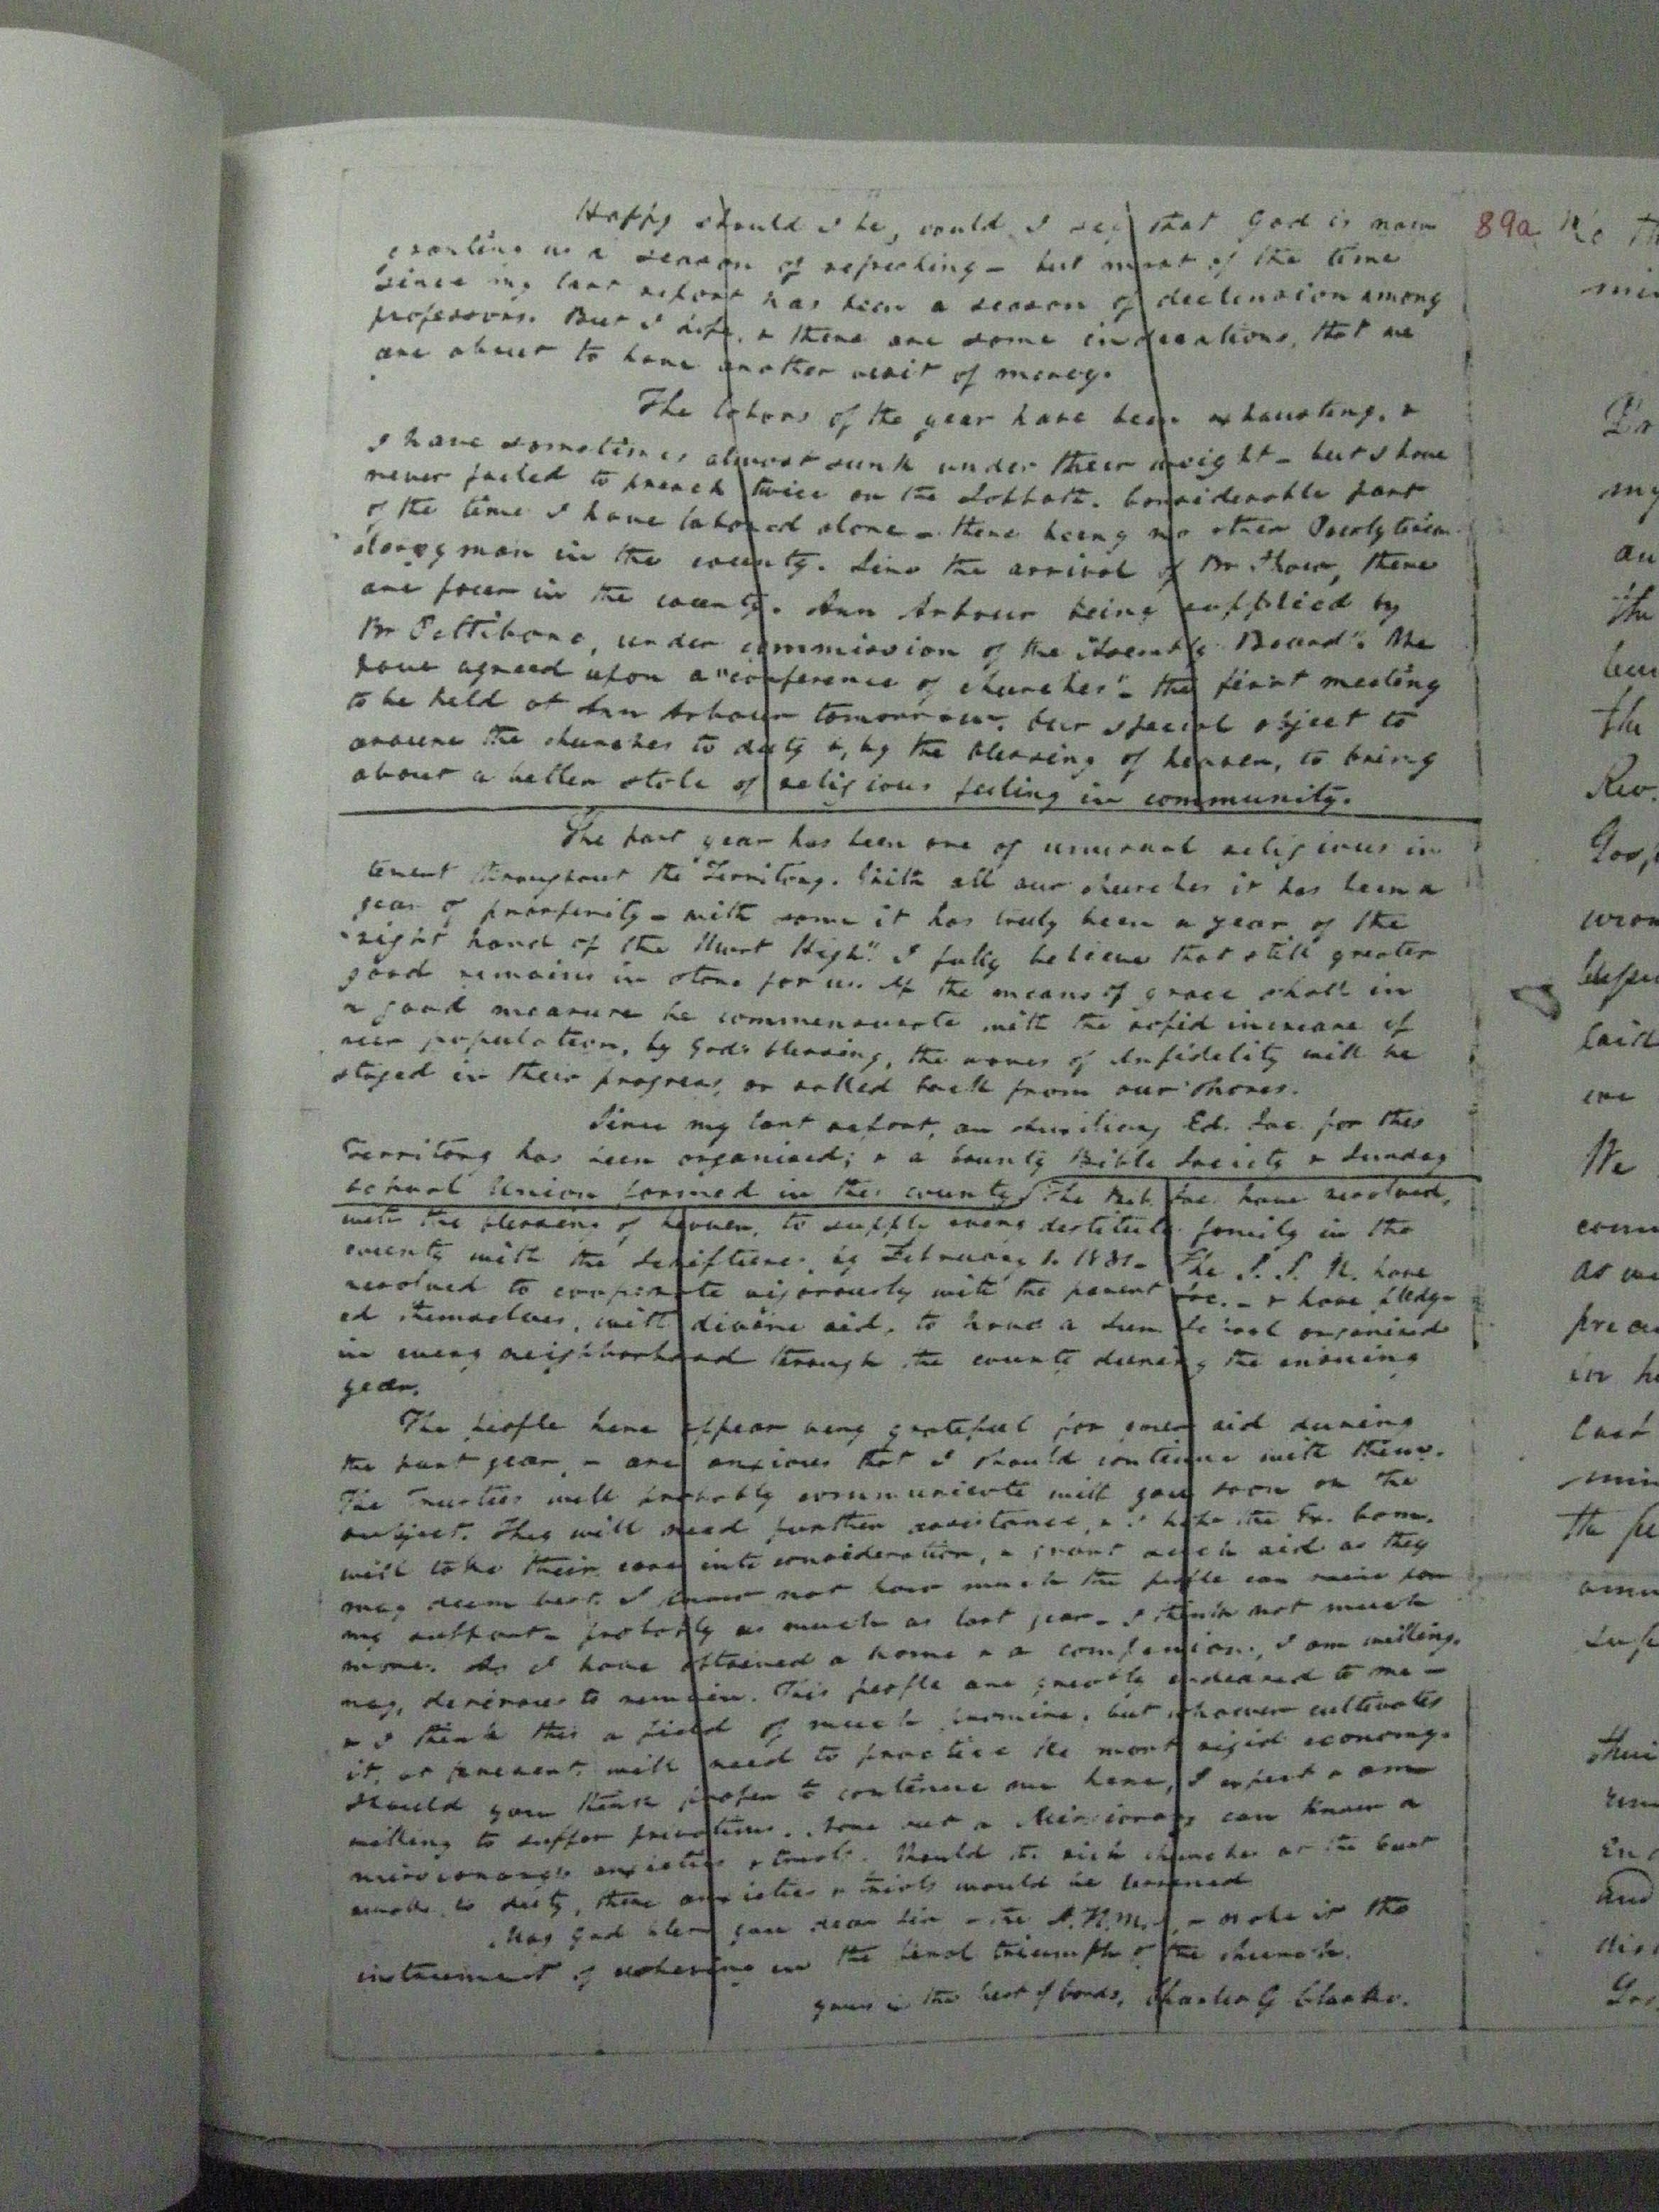 Happy should I be, could I say that God is now
granting us a season of refreshing - but most of the time
since my last report has been a season of declension among
professors. But I hope, & there are some indications, that we
are about to have another visit of mercy.
The labors of the year have been exhausting, &
I have sometimes almost sunk under their weight - but I have
never failed to preach twice on the Sabbath. Considerable part
of the time I have labored alone - there being no other Presbyterian
clergyman in the county. Since the arrival of Br. there
are four in the county. Ann Arbour being supplied by
Br Pettibone, under commission of the Assembly's Board". We
have agreed upon a "conference of churches" - the first meeting
to be held at Ann Arbour tomorrow. Our special object to
arouse the churches to duty &, by the blessing of heaven, to bring
about a better state of religious feeling in community.
The past year has been one of unusual religious in
terest throughout the Territory. With all our churches it has been a
year of prosperity - with some it has truly been a year of the
"right hand of the Most High". I fully believe that still greater
good remains in store for us. If the means of grace shall in
a good measure be commensurate with the rapid increase of
our population, by God's blessing, the waves of Infidelity will be
stayed in their progress, or rolled back from our shores.
Since my last report, an Auxiliary Ed. Soc. for this
Territory has been organized; & a County Bible Society & Sunday
school Union formed in this county. The Bib. Soc. have resolved,
with the blessing of heaven, to supply every destitute family in the
county with the Scriptures by February 1. 1831 - The S. S. U. have
resolved to cooperate vigorously with the parent Soc. - & have pledg-
ed themselves, with divine aid, to have a Sun. School organized
in every neighborhood through the county during the ensuing
year.
The people here appear very grateful for your aid during
the past year - are anxious that I should continue with them.
The Trustees will probably communicate with you soon on the
subject. They will need further assistance, & I hope the Ex. Com.
will take their case into consideration, & grant such aid as they
may deem best. I know not how much the people can raise for
my support - probably as much as last year - I think not much
more. As I have obtained a home & a companion, I am willing,
nay, desirous to remain. This people are greatly endeared to me -
& I think this a field of much promise, but whoever cultivates
it, at present, will need to practice the most rigid economy.
Should you think proper to continue me here, I expect & am
willing to suffer privations. None but a Missionary can know a
missionary's anxieties & trials. Should the rich churches at the East
awake to duty, these anxieties & trials would be lessened
May God bless you dear Sir & the A.H.M.S. - & make it the
instrument of ushering in the final triumph of the church.
yours in the best of bonds, Charles G Clarke.
89a